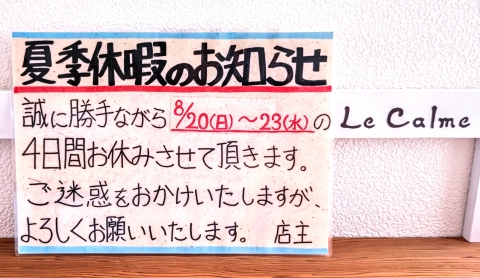 夏季休暇のお知らせ
誠に勝手ながら 8/20(日)〜23(水)の
4日間お休みさせて頂きます。
ご迷惑をおかけいたしますが、
よろしくお願いいたします。 店主
Le Calme